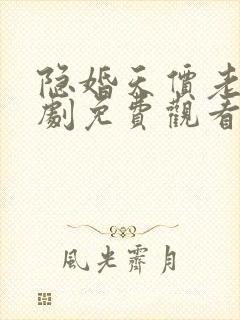 隐婚天價老
劇免費觀看
風光霽月